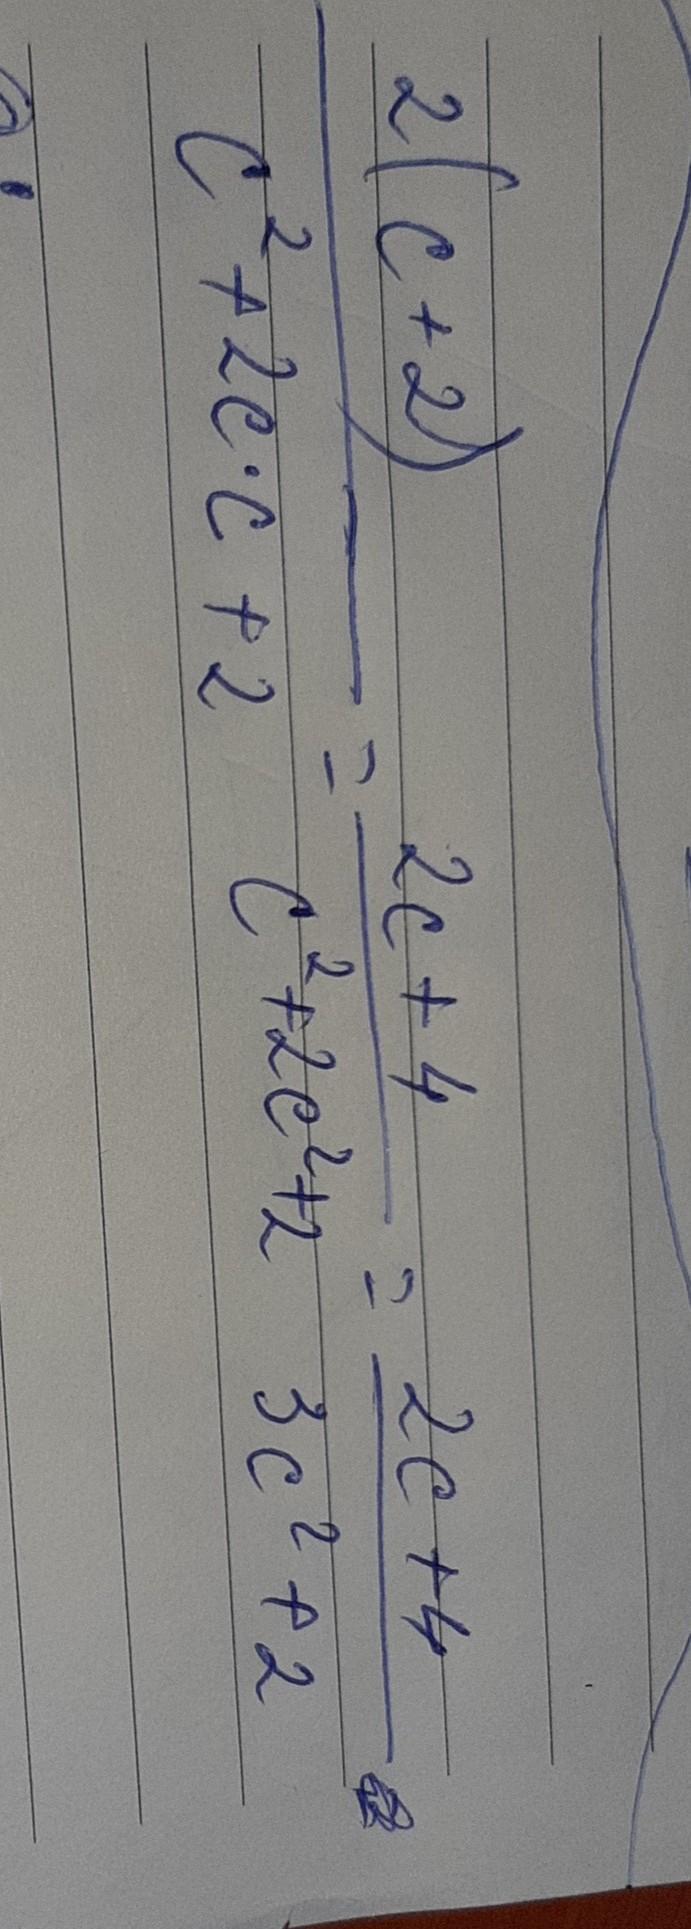 2(c+2) / c²+2c·c+2 = 2c+4 / c²+2c²+2 = 2c+4 / 3c²+2